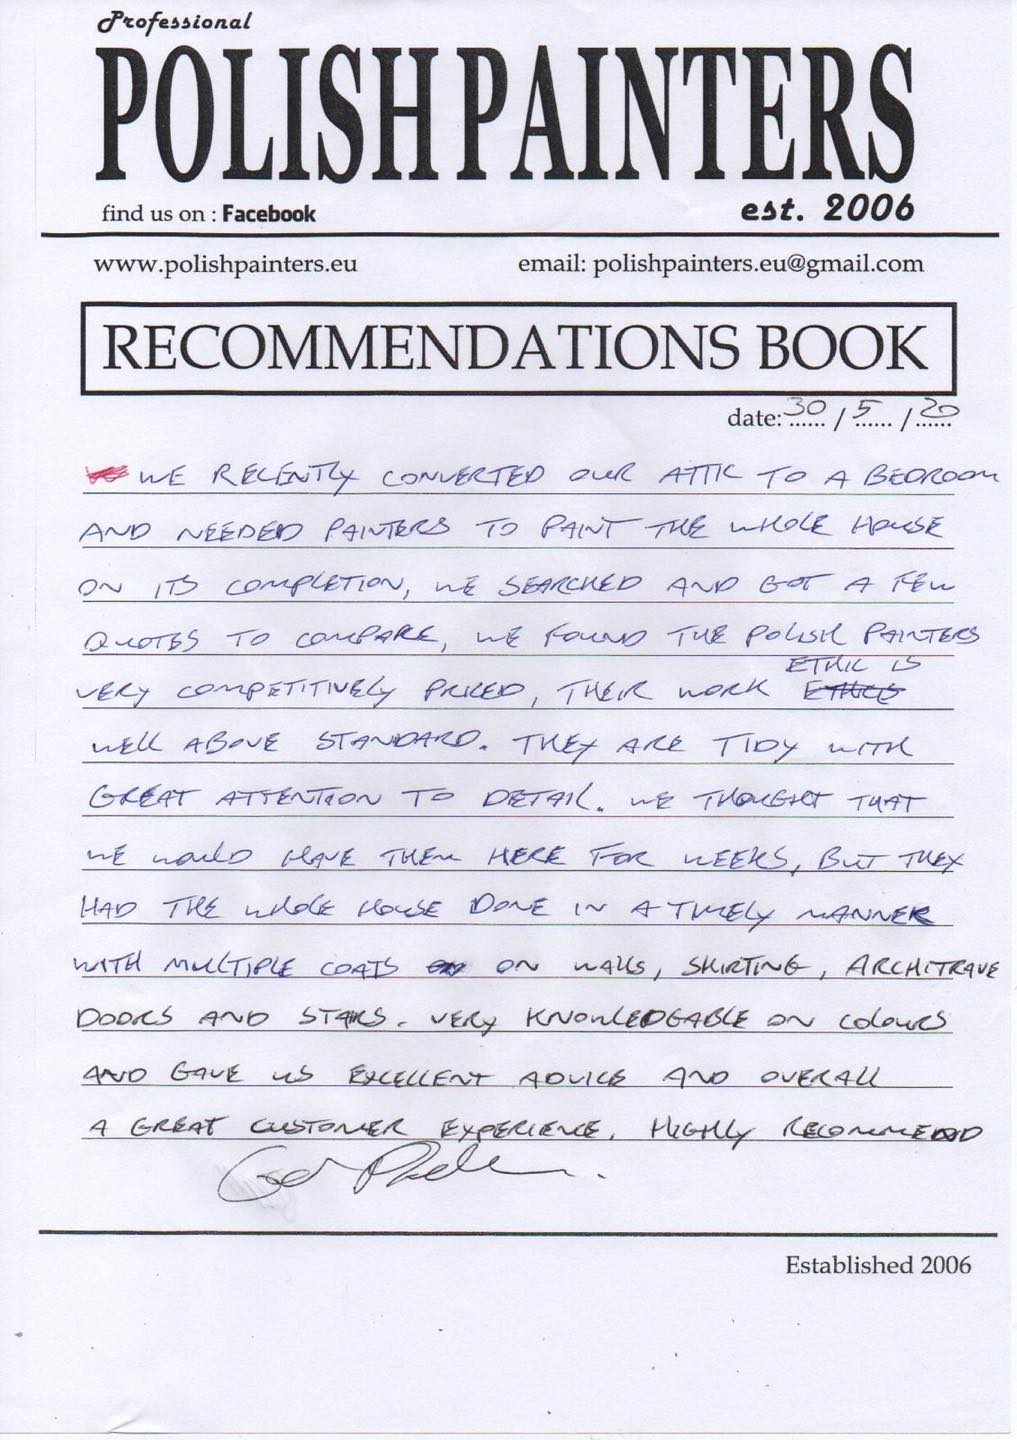 Professional
POLISH PAINTERS
find us on : Facebook
est. 2006
www.polishpainters.eu
email: polishpainters.eu@gmail.com
RECOMMENDATIONS BOOK
date: 30 / 5 / 20
WE RECENTLY CONVERTED OUR ATTIC TO A BEDROOM
AND NEEDED PAINTERS TO PAINT THE WHOLE HOUSE
ON ITS COMPLETION, WE SEARCHED AND GOT A FEW
QUOTES TO COMPARE, WE FOUND THE POLISH PAINTERS
VERY COMPETITIVELY PRICED, THEIR WORK ETHIC IS
WELL ABOVE STANDARD. THEY ARE TIDY WITH
GREAT ATTENTION TO DETAIL. WE THOUGHT THAT
WE WOULD HAVE THEM HERE FOR WEEKS, BUT THEY
HAD THE WHOLE HOUSE DONE IN A TIMELY MANNER
WITH MULTIPLE COATS ON WALLS, SKIRTING, ARCHITRAVE
DOORS AND STAIRS. VERY KNOWLEDGEABLE ON COLOURS
AND GAVE US EXCELLENT ADVICE AND OVERALL
A GREAT CUSTOMER EXPERIENCE. HIGHLY RECOMMEND
Established 2006